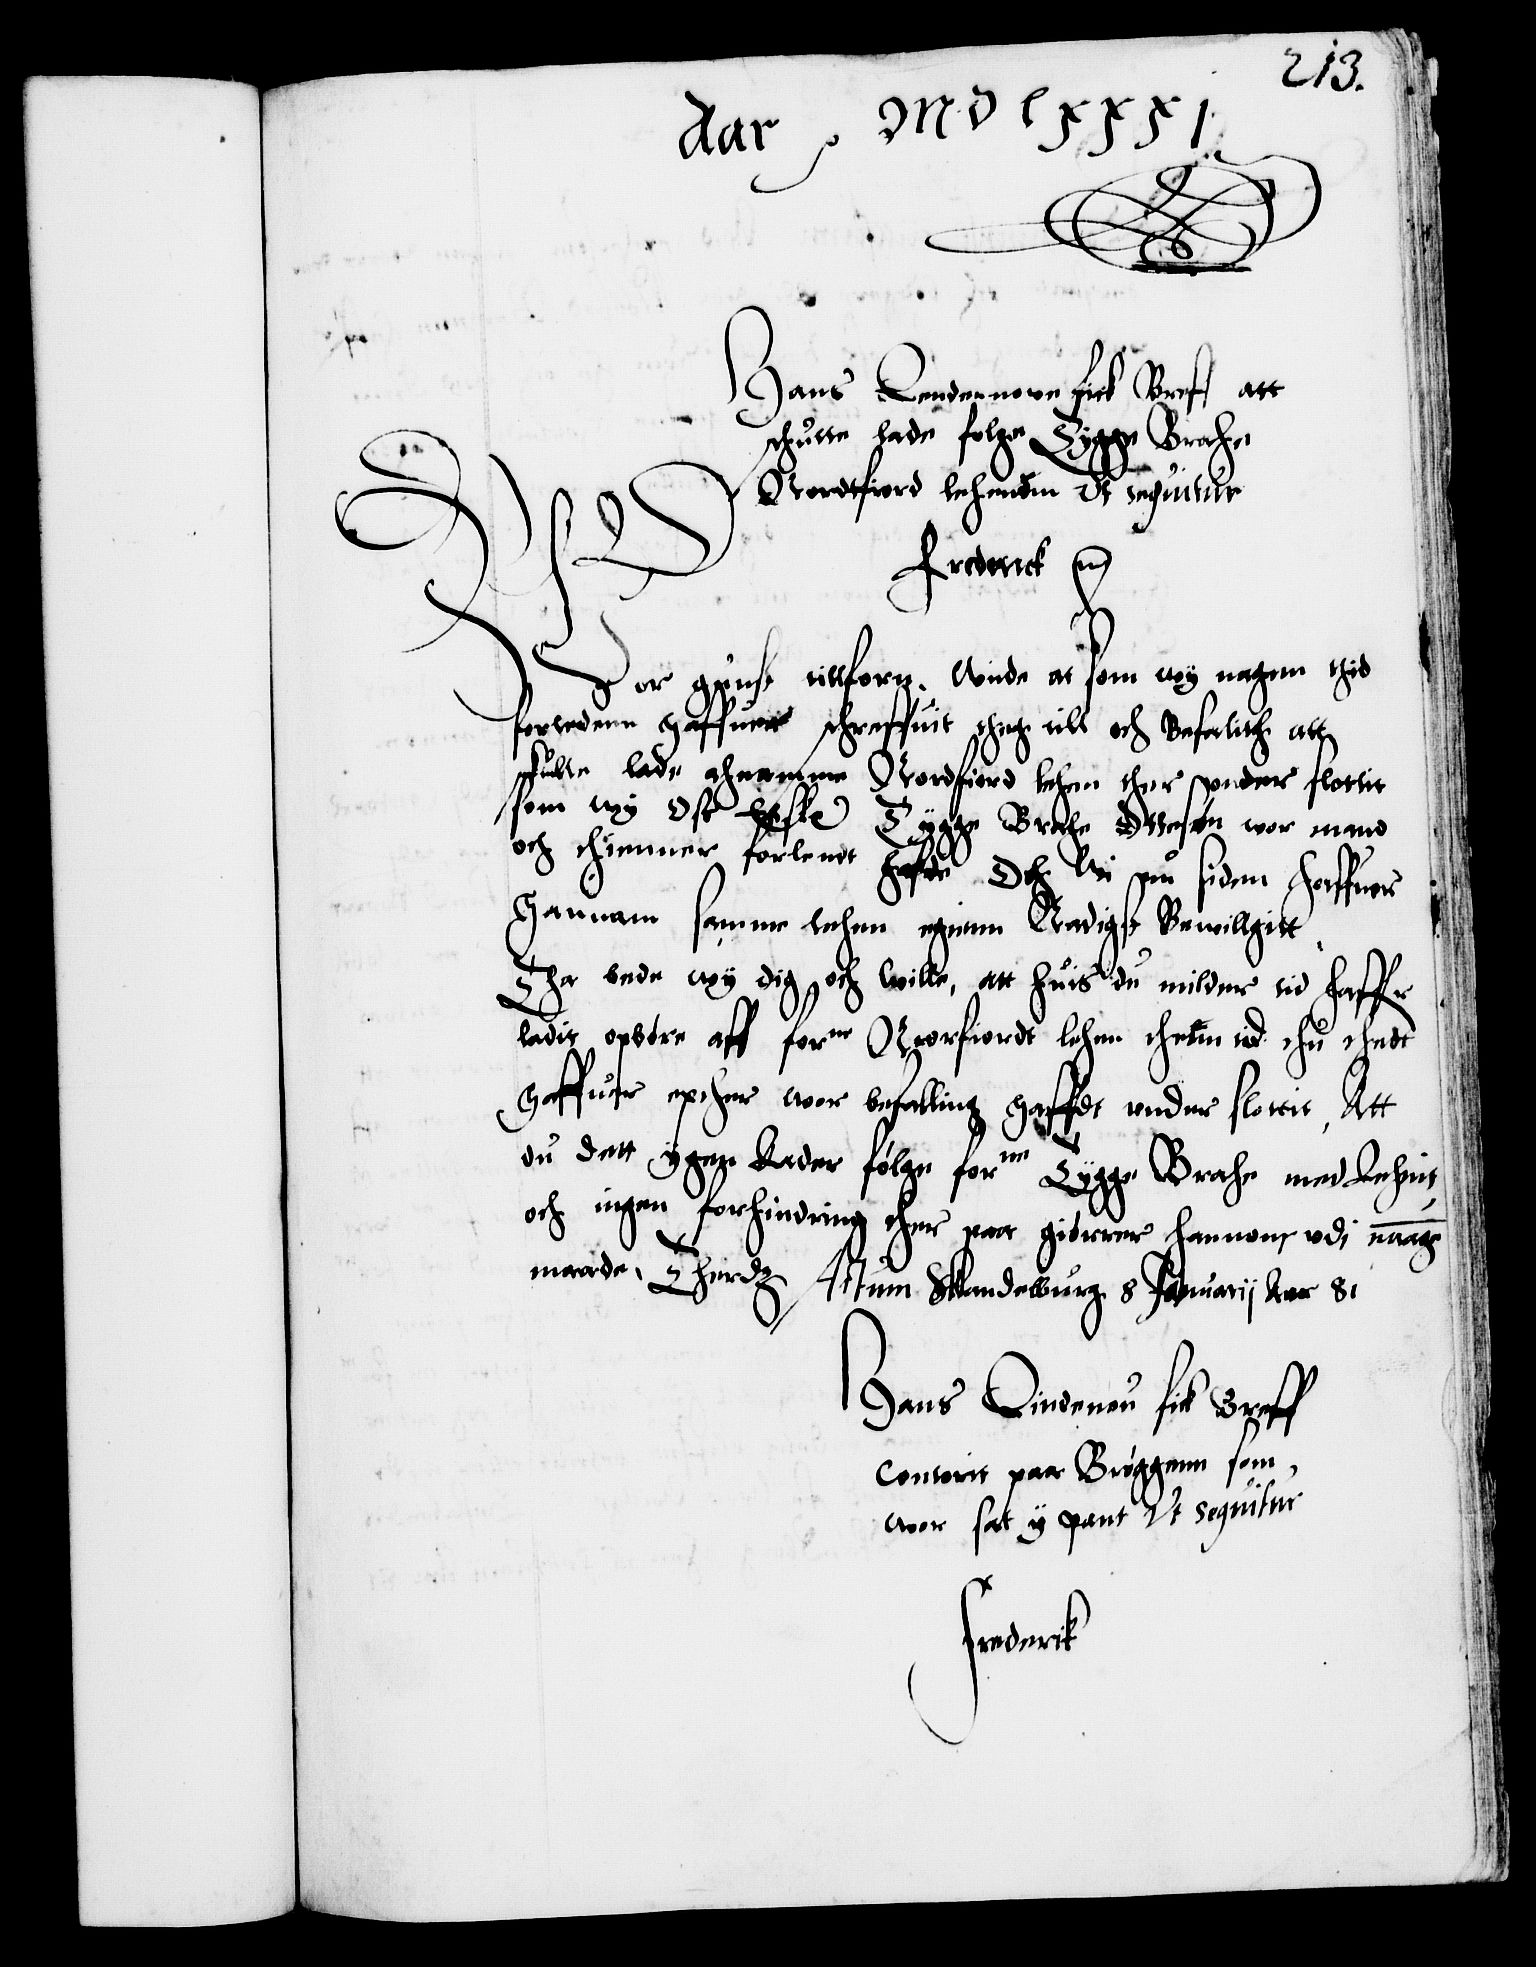 213.
Aar MDLXXXI
Hans Lendenowe fick Breff att
schulle lade følge Tygge Brahe
Nordfiord lehenn Vt sequitur
Frederick
Wor gunst tillforn. Wiide at som wy nagenn thid
forledenn haffuer schreffuit theg till och befalith att
skulle lade ahnamme Nordfiord lehen ther wnder slottit
som wy oss elske Tygge Brahe Ottesøn wor mand
och thienner forlent hafde Och wi nu siden haffuer
hannam samme lehen egienn Nadigst Bewillgitt
Tha bede wy dig och wille, att huis du midler tid haffr
ladit opbere aff forne Norfiordt lehen then tid thu thedt
haffuer epther wor befalling hafft under slottit, Att
du dett ygen lader følge forne Tygge Brahe med Lehnit
och ingen forhindring ther paa giørrer hannom vdi naage
maade, Therdg Actum Skandelburg 8 Januarij Aar 81
Hans Lindenou fick Breff
contorit paa Brøggenn som
wor sat y pant Vt sequitur
Frederik